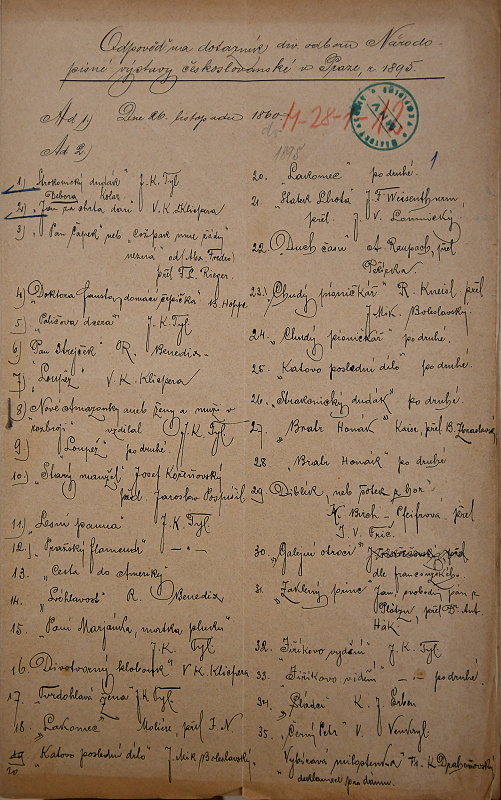 Odpověď na dotazník div. odboru Národo-
pisné výstavy českoslovanské v Praze, r. 1895.
Ad 1) Dne 26. listopadu 1860.
1895
Ad 2)
1.) Strakonický dudák" J. K. Tyl
Debora
2.) Jan za chrta dán" V. K. Klicpera
3) "Pan Čapek" neb "Což pak mne žádný
nezná" od
přel F. L. Rieger.
4) "Doktora Fausta domácí čepička" B. Hoppe
5) "Paličova dcera" J. K. Tyl
6) Pan Strejček R. Benedix
7) "Loupež" V. K. Klicpera
8) Nové Amazonky aneb ženy a muži v
rozbroji" vzdělal J. K. Tyl
9) "Loupež" po druhé.
10) "Starý manžel" Josef Korzeňovský
přel. Jaroslav Pospíšil
11.) "Lesní panna" J. K. Tyl
12.) "Pražský flamendr" — " —
13. "Cesta do Ameriky
14. "Lichlavost" R. Benedix
15. "Paní Marjánka, matka pluku"
J. K. Tyl
16. Divotvorný klobouk" V. K. Klicpera
17. "Tvrdohlavá žena" J. K. Tyl
18. "Lakomec" Moliere, přel J. N
20 "Katovo poslední dílo" J. Mik Boleslavský.
20. "Lakomec" po druhé.
21. "Statek Lhota" J. F. Weisenthurn,
přel J. V.
22. "Duch času" A. Raupach, přel
Peťírka
23.) "Chudý písničkář" R. Kneisl přel
J. Mik. Boleslavský.
24. "Chudý písničkář" po druhé.
25. "Katovo poslední dílo" po druhé.
26. "Strakonický dudák" po druhé.
27. "Bratr Honák" Kaise, přel B.
28. "Bratr Honák" po druhé
29. Diblík, neb šotek z hor"
K. Birch-Pfeifrova přel
J. V. Frič.
30. "Galejní otroci"
dle francouzského.
31. Zakletý princ Jan, svobodný pán z
Plötzu, přel B. Ant.
Hák
32. "Jiříkovo vidění" J. K. Tyl
33. "Jiříkovo vidění" — " — po druhé.
34. "Žebráci" K. J. Erben
35. "Černý Petr" V. Venkryl.
"Vybíravá milostenka" Fr. K. Drahoňovský
deklamace pro dámu.